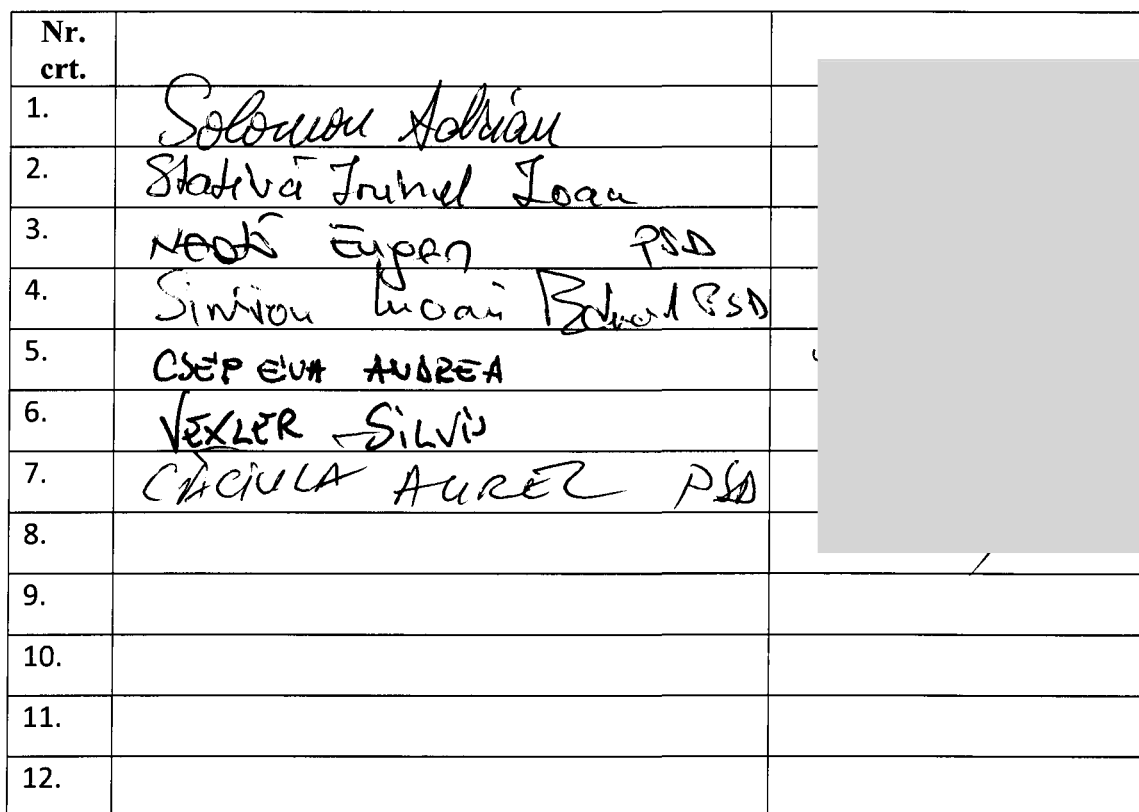 Nr.
crt.
1. Solomon Adrian
2. Stativă Irinel Ioan
3. Neață Eugen PSD
4. Simion Lucian Eduard PSD
5. CSEP EVA ANDREA
6. VEXLER SILVIU
7. CĂCIULA AUREL PSD
8.
9.
10.
11.
12.